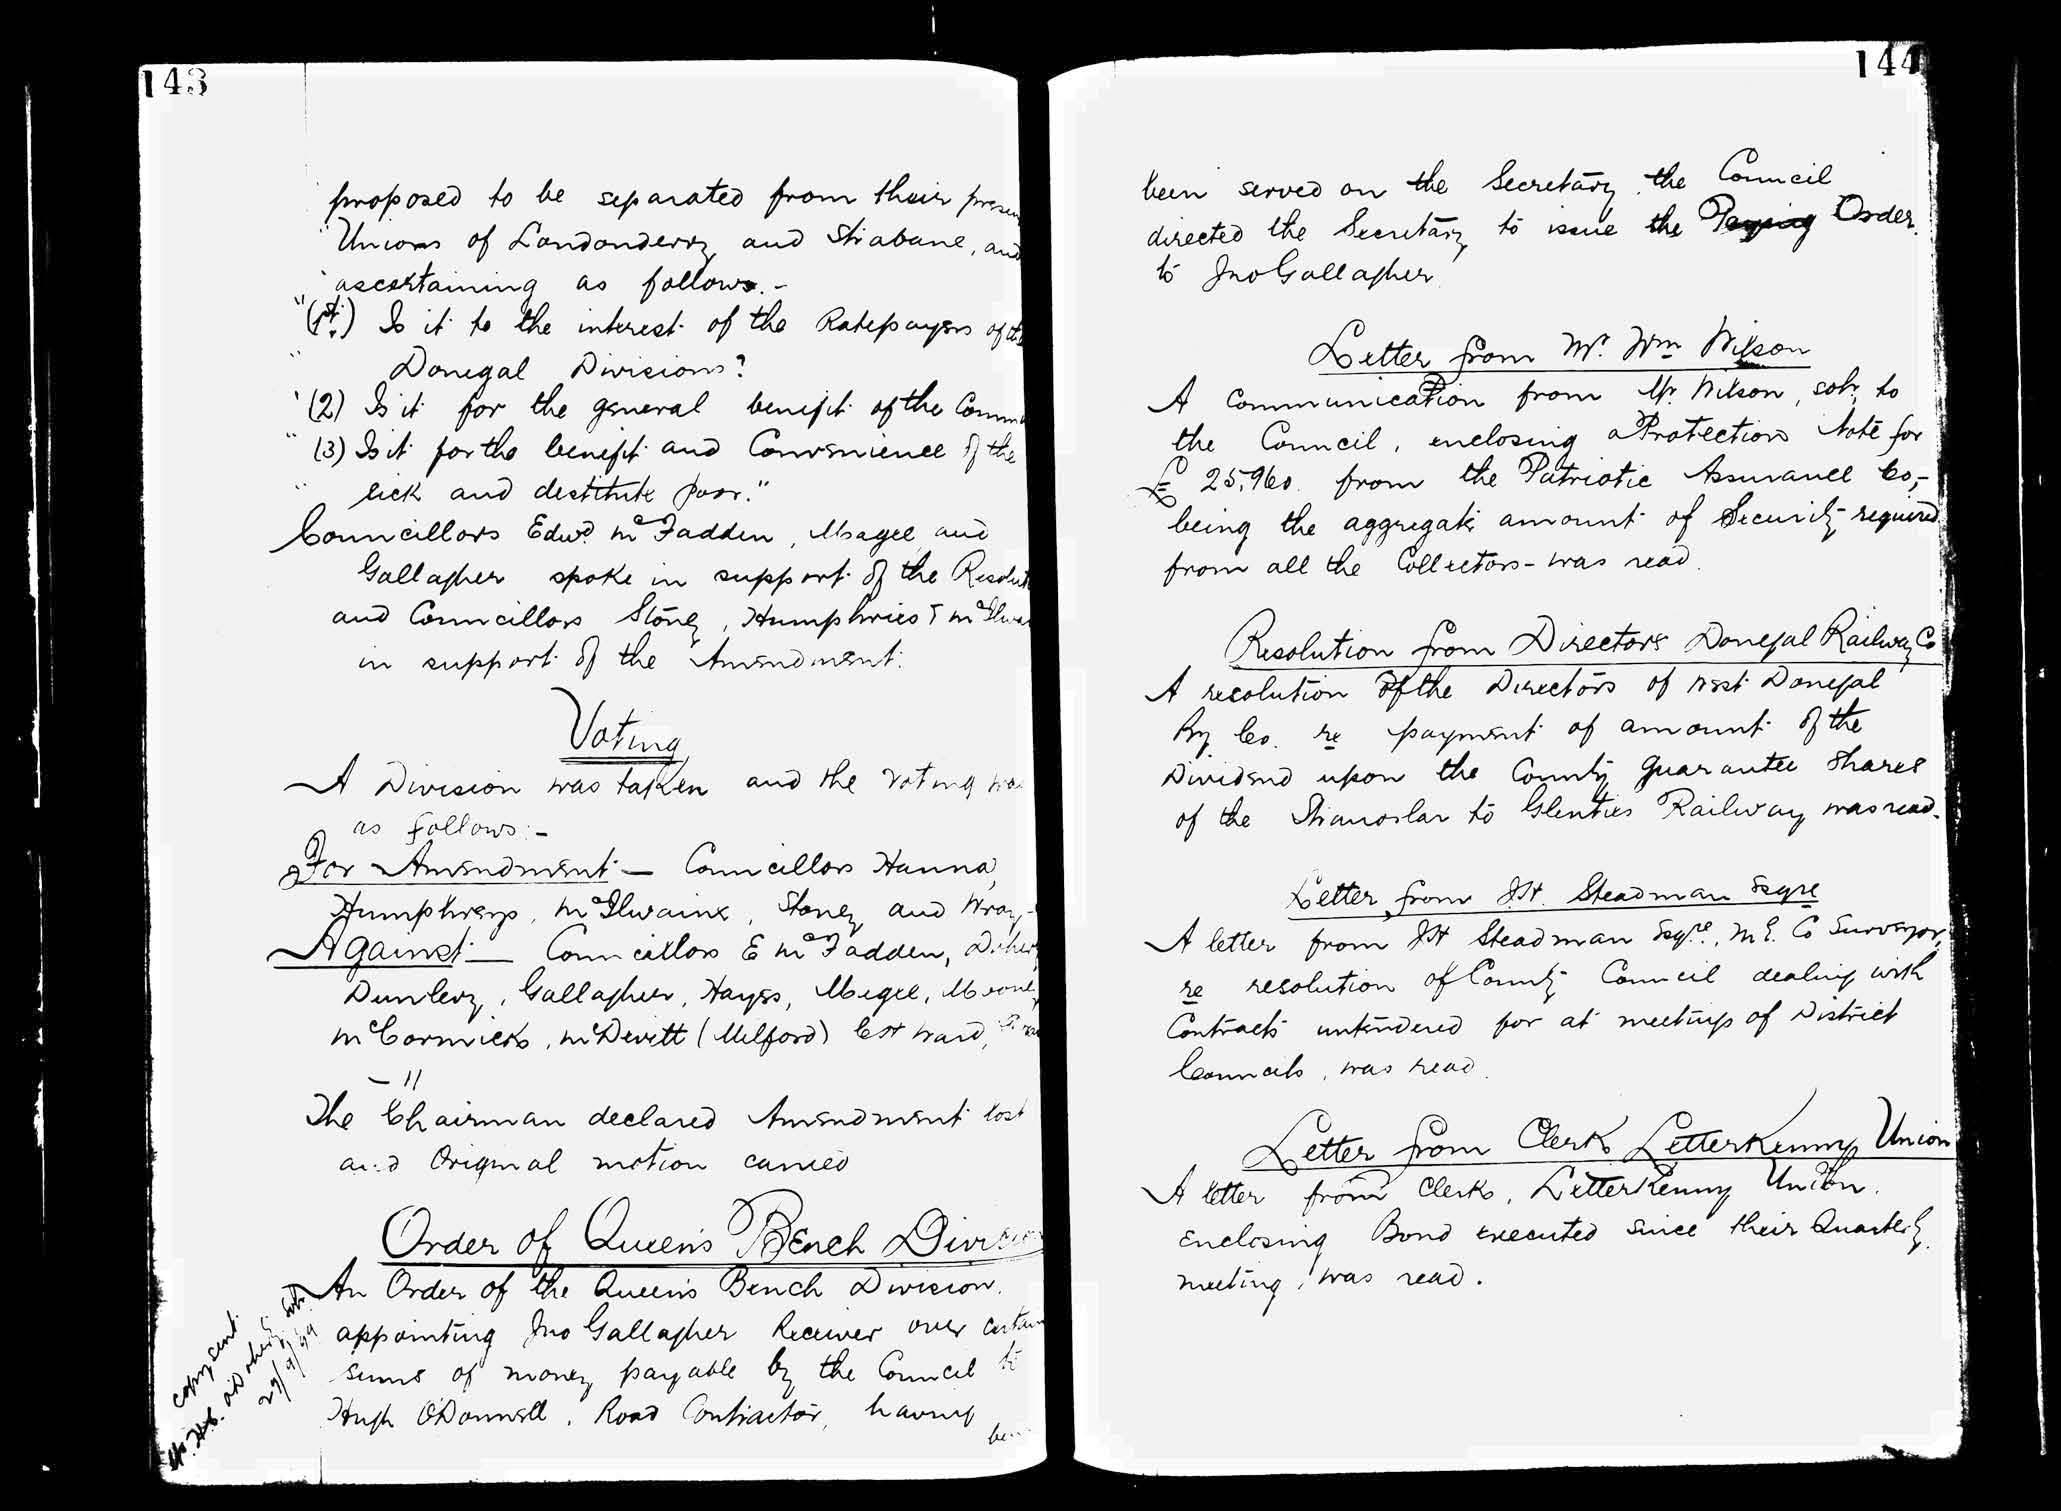 143
proposed to be separated from their
"Unions of Londonderry and Strabane, and
"ascertaining as follows.-
"(1st.) Is it to the interest of the Ratepayers of the
" Donegal Divisions?
"(2) Is it for the general benefit of the
" (3) Is it for the benefit and Convenience of the
" sick and destitute poor."
Councillors Edwd. McFadden, Magee, and
Gallagher spoke in support of the
and Councillors Stoney, Humphries &
in support of the Amendment.
Voting
A Division was taken and the voting was
as follows:-
For Amendment — Councillors Hanna,
Humphreys, McIlwaine, Stoney and Wray-
Against — Councillors E McFadden,
Dunlevy, Gallagher, Hayes, Megee,
McCormick, McDevitt (Milford) Ed Ward,
— 11
The Chairman declared Amendment lost
and Original motion carried
Order of Queen's Bench Division
An Order of the Queen's Bench Division.
appointing Jno Gallagher Receiver over certain
sums of money payable by the Council to
Hugh O'Donnell, Road Contractor, having
been
copy sent
27/9/99
144
been served on the Secretary. the Council
directed the Secretary to issue the Paying Order.
to Jno Gallagher
Letter from Mr. Wm Wilson
A communication from Mr. Wilson, solr, to
the Council, enclosing a Protection Note for
£25,960. from the Patriotic Assurance Co,-
being the aggregate amount of Security required
from all the Collectors - was read.
Resolution from Directors Donegal Railway Co
A resolution of the Directors of West Donegal
Ry. Co. re payment of amount of the
Dividend upon the County guarantee shares
of the Stranorlar to Glenties Railway was read.
Letter from J.H. Steadman Esqre
A letter from JH Steadman Esqre, M.E. Co Surveyor,
re resolution of County Council dealing with
Contracts untendered for at meetings of District
Councils, was read.
Letter from Clerk Letterkenny Union
A letter from Clerk, Letterkenny Union.
enclosing Bond executed since their Quarterly.
meeting, was read.